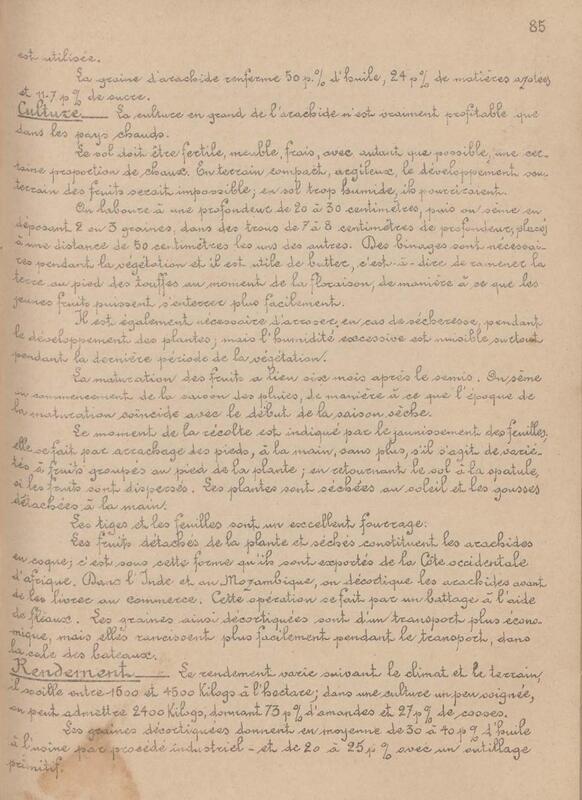 85
est utilisée.
La graine d'arachide renferme 50 p.% d'huile, 24 p% de matières azotées
et 11.7 p% de sucre.
Culture___ La culture en grand de l'arachide n'est vraiment profitable que
dans les pays chauds.
Le sol doit être fertile, meuble, frais, avec autant que possible, une cer-
taine proportion de chaux. En terrain compact, argileux, le développement sou-
terrain des fruits serait impossible; en sol trop humide, ils pourriraient.
On laboure à une profondeur de 20 à 30 centimètres, puis on sème en
déposant 2 ou 3 graines, dans des trous de 7 à 8 centimètres de profondeur, placés
à une distance de 50 centimètres les uns des autres. Des binages sont nécessai-
res pendant la végétation et il est utile de butter, c'est-à-dire de ramener la
terre au pied des touffes au moment de la floraison, de manière à ce que les
jeunes fruits puissent s'enterrer plus facilement.
Il est également nécessaire d'arroser, en cas de sécheresse, pendant
le développement des plantes; mais l'humidité excessive est nuisible surtout
pendant la dernière période de la végétation.
La maturation des fruits a lieu six mois après le semis. On sème
au commencement de la saison des pluies, de manière à ce que l'époque de
la maturation coïncide avec le début de la saison sèche.
Le moment de la récolte est indiqué par le jaunissement des feuilles;
elle se fait par arrachage des pieds, à la main, sans plus, s'il s'agit de varié-
tés à fruits groupés au pied de la plante; en retournant le sol à la spatule,
si les fruits sont dispersés. Les plantes sont séchées au soleil et les gousses
détachées à la main.
Les tiges et les feuilles sont un excellent fourrage.
Les fruits détachés de la plante et séchés constituent les arachides
en coque; c'est sous cette forme qu'ils sont exportés de la Côte occidentale
d'Afrique. Dans l'Inde et au Mozambique, on décortique les arachides avant
de les livrer au commerce. Cette opération se fait par un battage à l'aide
de fléaux. Les graines ainsi décortiquées sont d'un transport plus écono-
mique, mais elles rancissent plus facilement pendant le transport, dans
la cale des bateaux.
Rendement___ Le rendement varie suivant le climat et le terrain,
il oscille entre 1500 et 4500 Kilogs à l'hectare; dans une culture un peu soignée,
on peut admettre 2400 Kilogs, donnant 73 p% d'amandes et 27 p% de cosses.
Les graines décortiquées donnent en moyenne de 30 à 40 p% d'huile
à l'usine par procédé industriel - et de 20 à 25 p% avec un outillage
primitif.